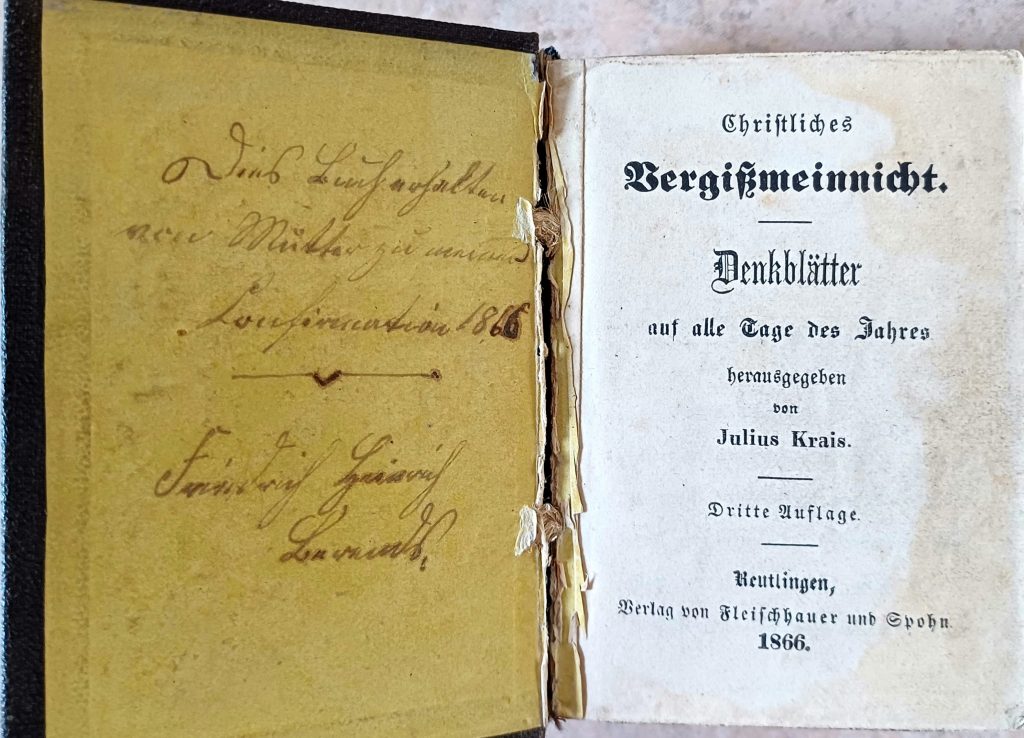 Dies Buch erhalten
von Mutter zu meiner
Confirmation 1866
Friedrich Heinrich
Berends.
Christliches
Vergißmeinnicht.
Denkblätter
auf alle Tage des Jahres
herausgegeben
von
Julius Krais.
Dritte Auflage.
Reutlingen,
Verlag von Fleischhauer und Spohn.
1866.